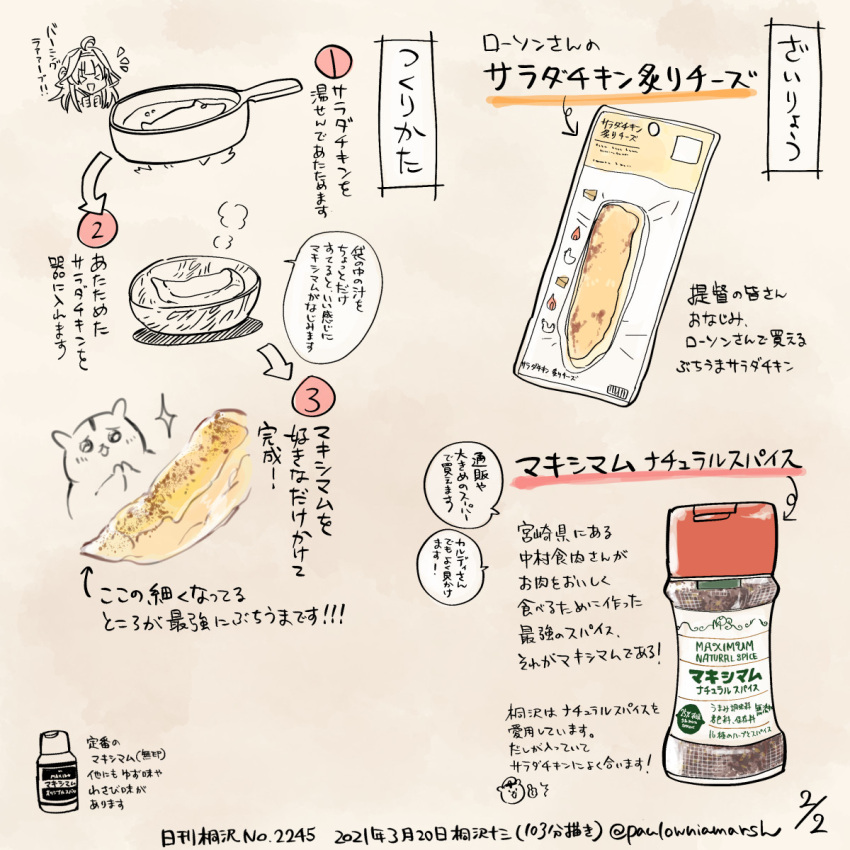 ざいりょう
ローソンさんの
サラダチキン炙りチーズ
サラダチキン
炙りチーズ
サラダチキン 炙りチーズ
提督の皆さん
おなじみ、
ローソンさんで買える
ぶちうまサラダチキン
マキシマム ナチュラルスパイス
通販や
大きめのスーパー
で買えます
カルディさん
でもよく見かけ
ます!
宮崎県にある
中村食肉さんが
お肉をおいしく
食べるために作った
最強のスパイス、
それがマキシマムである!
MAXIMUM
NATURAL SPICE
マキシマム
ナチュラルスパイス
うまみ調味料
着色料、保存料
無添加
16種のハーブとスパイス
桐沢はナチュラルスパイスを
愛用しています。
だしが入っていて
サラダチキンによく合います!
つくりかた
バーニング
ラァァーブ!!
1
サラダチキンを
湯せんであたためます
2
あたためた
サラダチキンを
器に入れます
袋の中の汁を
ちょっとだけ
すてると、いい感じに
マキシマムがなじみます
3
マキシマムを
好きなだけかけて
完成ー!
ここの細くなってる
ところが最強にぶちうまです!!!
マキシマム
定番の
マキシマム(無印)
他にもゆず味や
わさび味が
あります
2/2
日刊桐沢No.2245 2021年3月20日桐沢十三(103分描き)@paulowniamarsh